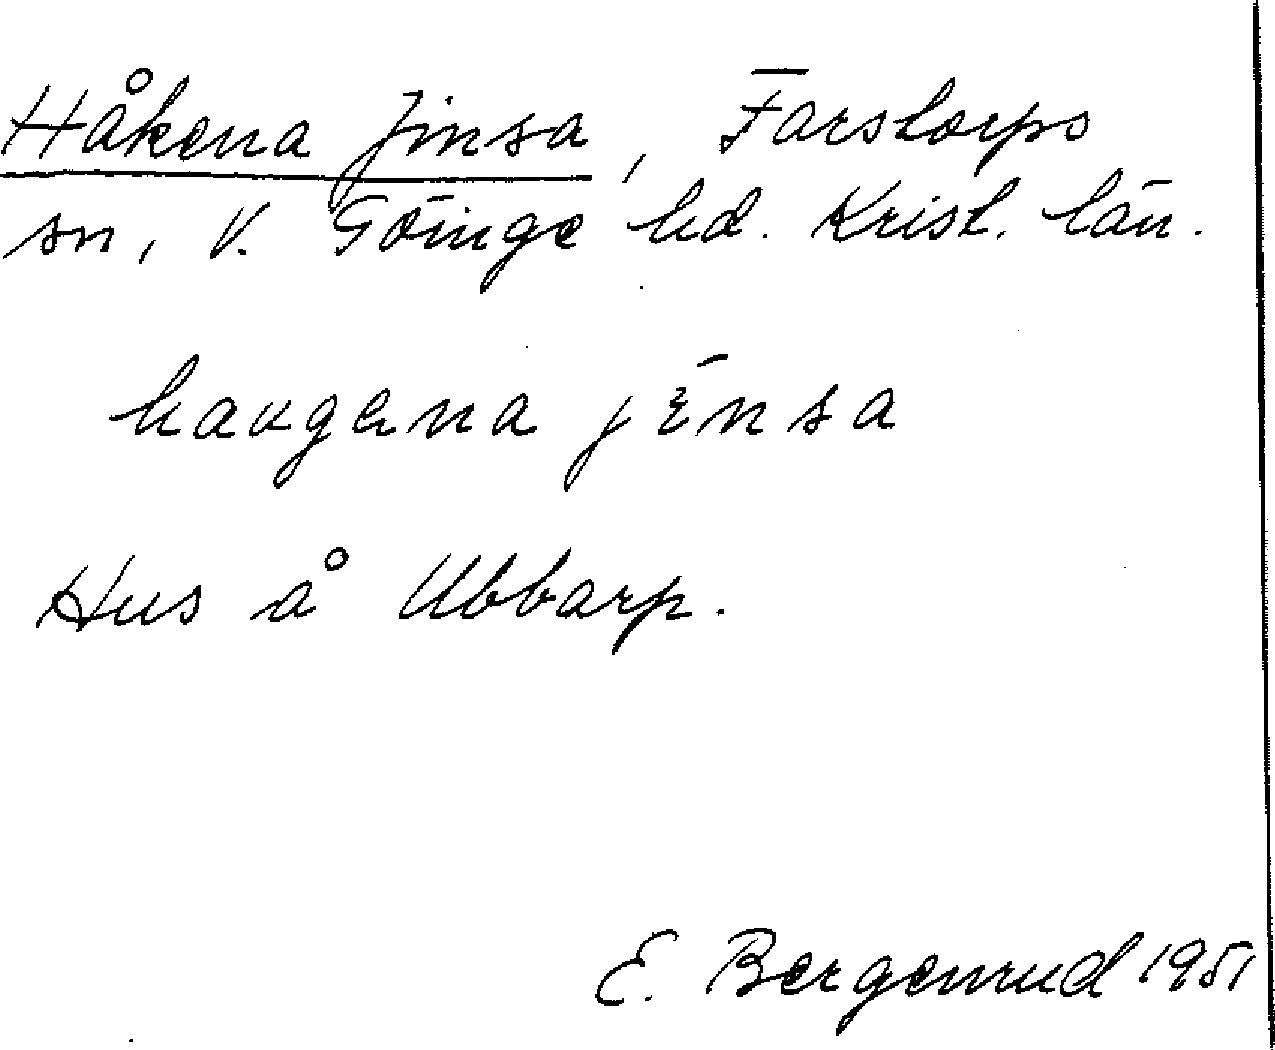 Håkena Jinsa, Farstorps
sn, V. Göinge hd. Krist. län.
haugena jēnsa
Hus å Ubbarp.
E. Bergenrud 1951